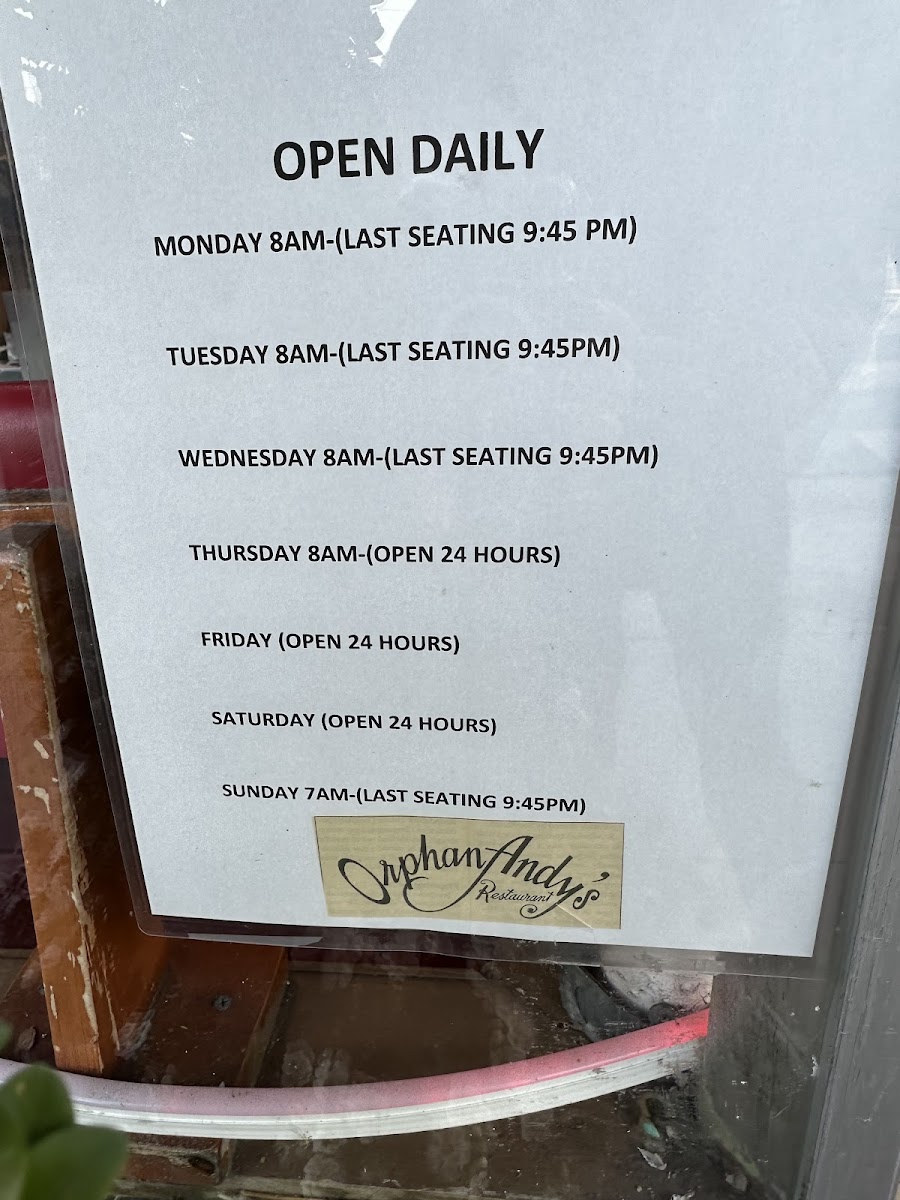 OPEN DAILY
MONDAY 8AM-(LAST SEATING 9:45 PM)
TUESDAY 8AM-(LAST SEATING 9:45PM)
WEDNESDAY 8AM-(LAST SEATING 9:45PM)
THURSDAY 8AM-(OPEN 24 HOURS)
FRIDAY (OPEN 24 HOURS)
SATURDAY (OPEN 24 HOURS)
SUNDAY 7AM-(LAST SEATING 9:45PM)
Orphan Andy's
Restaurant